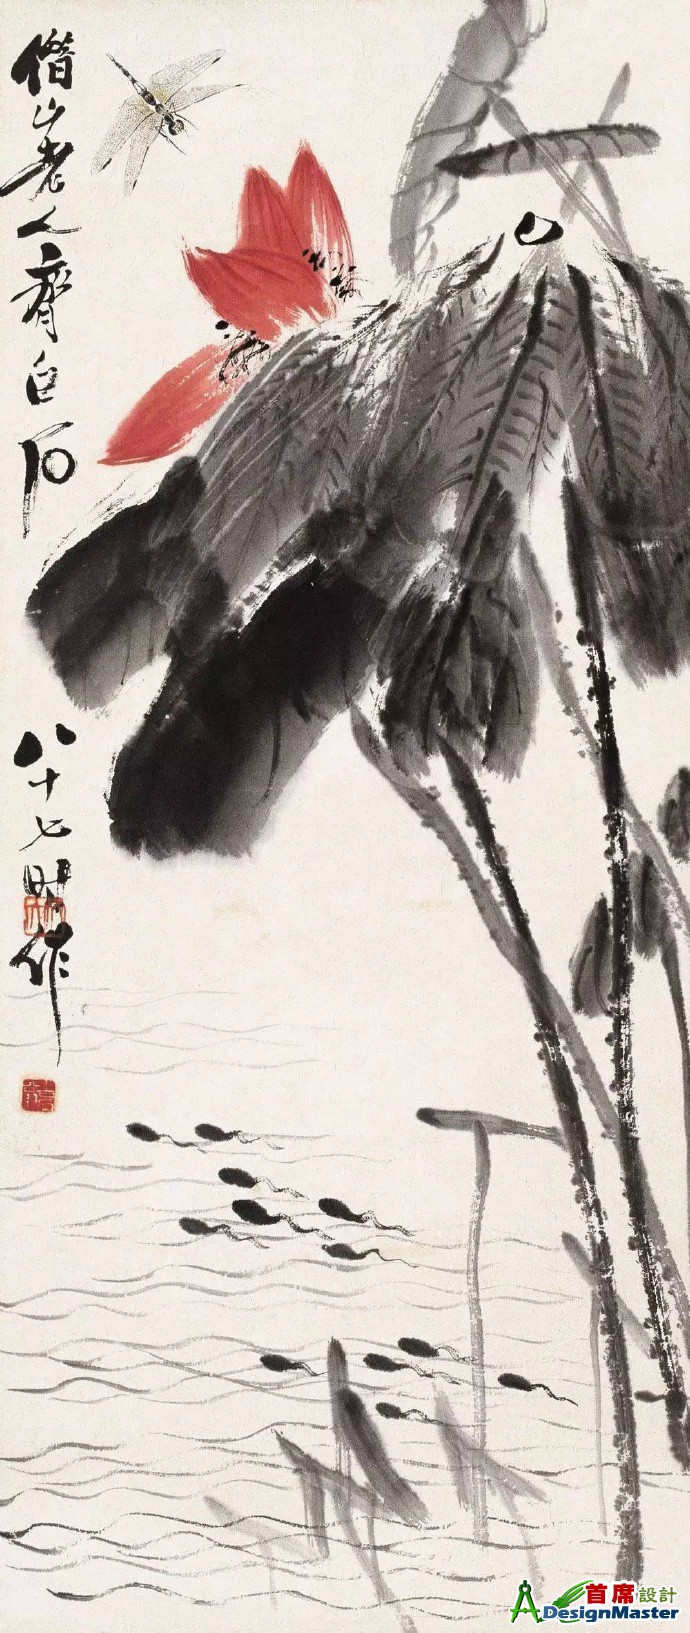 借山老人齊白石
八十七時作
首席設計
ADesignMaster